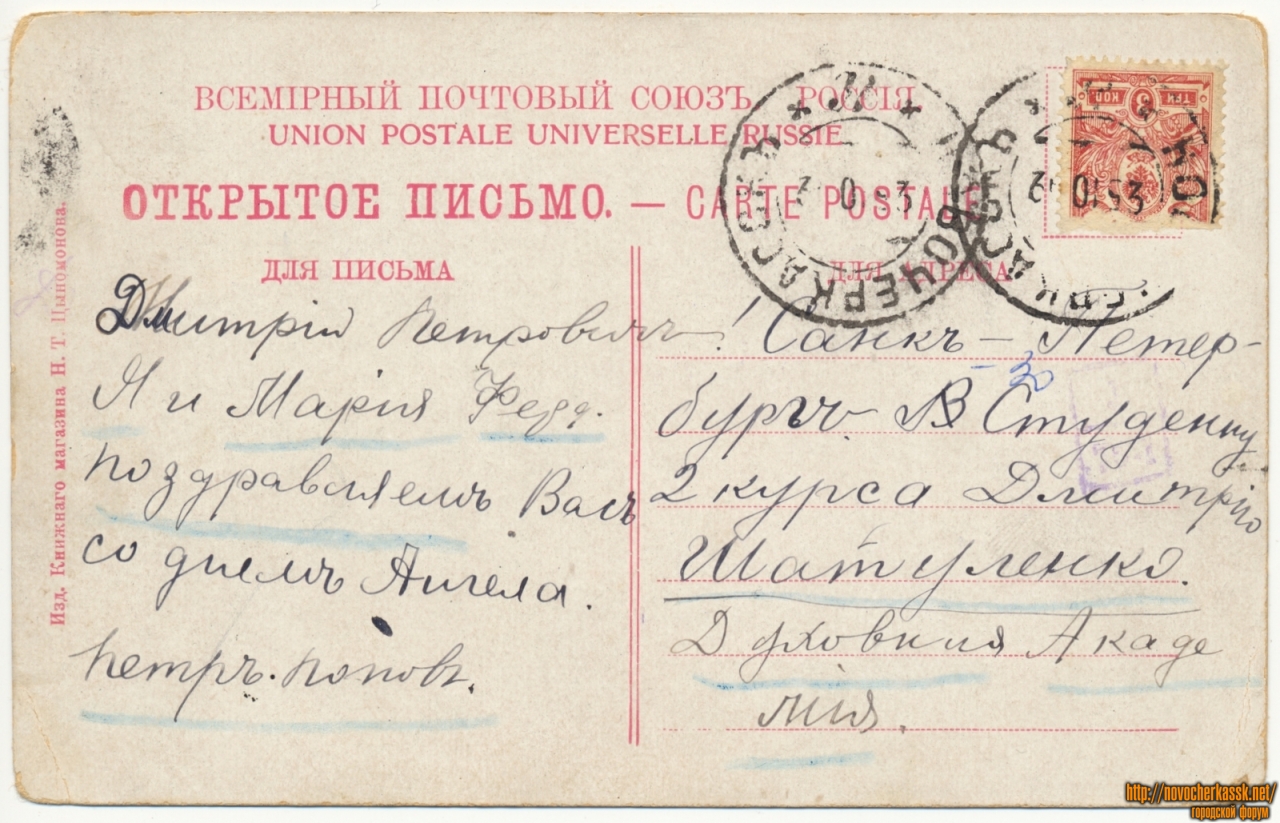 ВСЕМІРНЫЙ ПОЧТОВЫЙ СОЮЗЪ. РОССІЯ.
UNION POSTALE UNIVERSELLE RUSSIE
ОТКРЫТОЕ ПИСЬМО. — CARTE POSTALE
ДЛЯ ПИСЬМА
Дмитрій Петровичъ!
Я и Марія Федр.
поздравляемъ Васъ
со днемъ Ангела.
Петръ Поповъ.
ДЛЯ АДРЕСА
Санкъ-Петер-
бургъ. В Студенту
2 курса Дмитрію
Шатуленко.
Духовния Акаде
мия.
Изд. Книжнаго магазина Н. Т. Цыпомонова.
ТРИ 3 КОП.
НОВОЧЕРКАССКЪ
http://novocherkassk.net/
городской форум